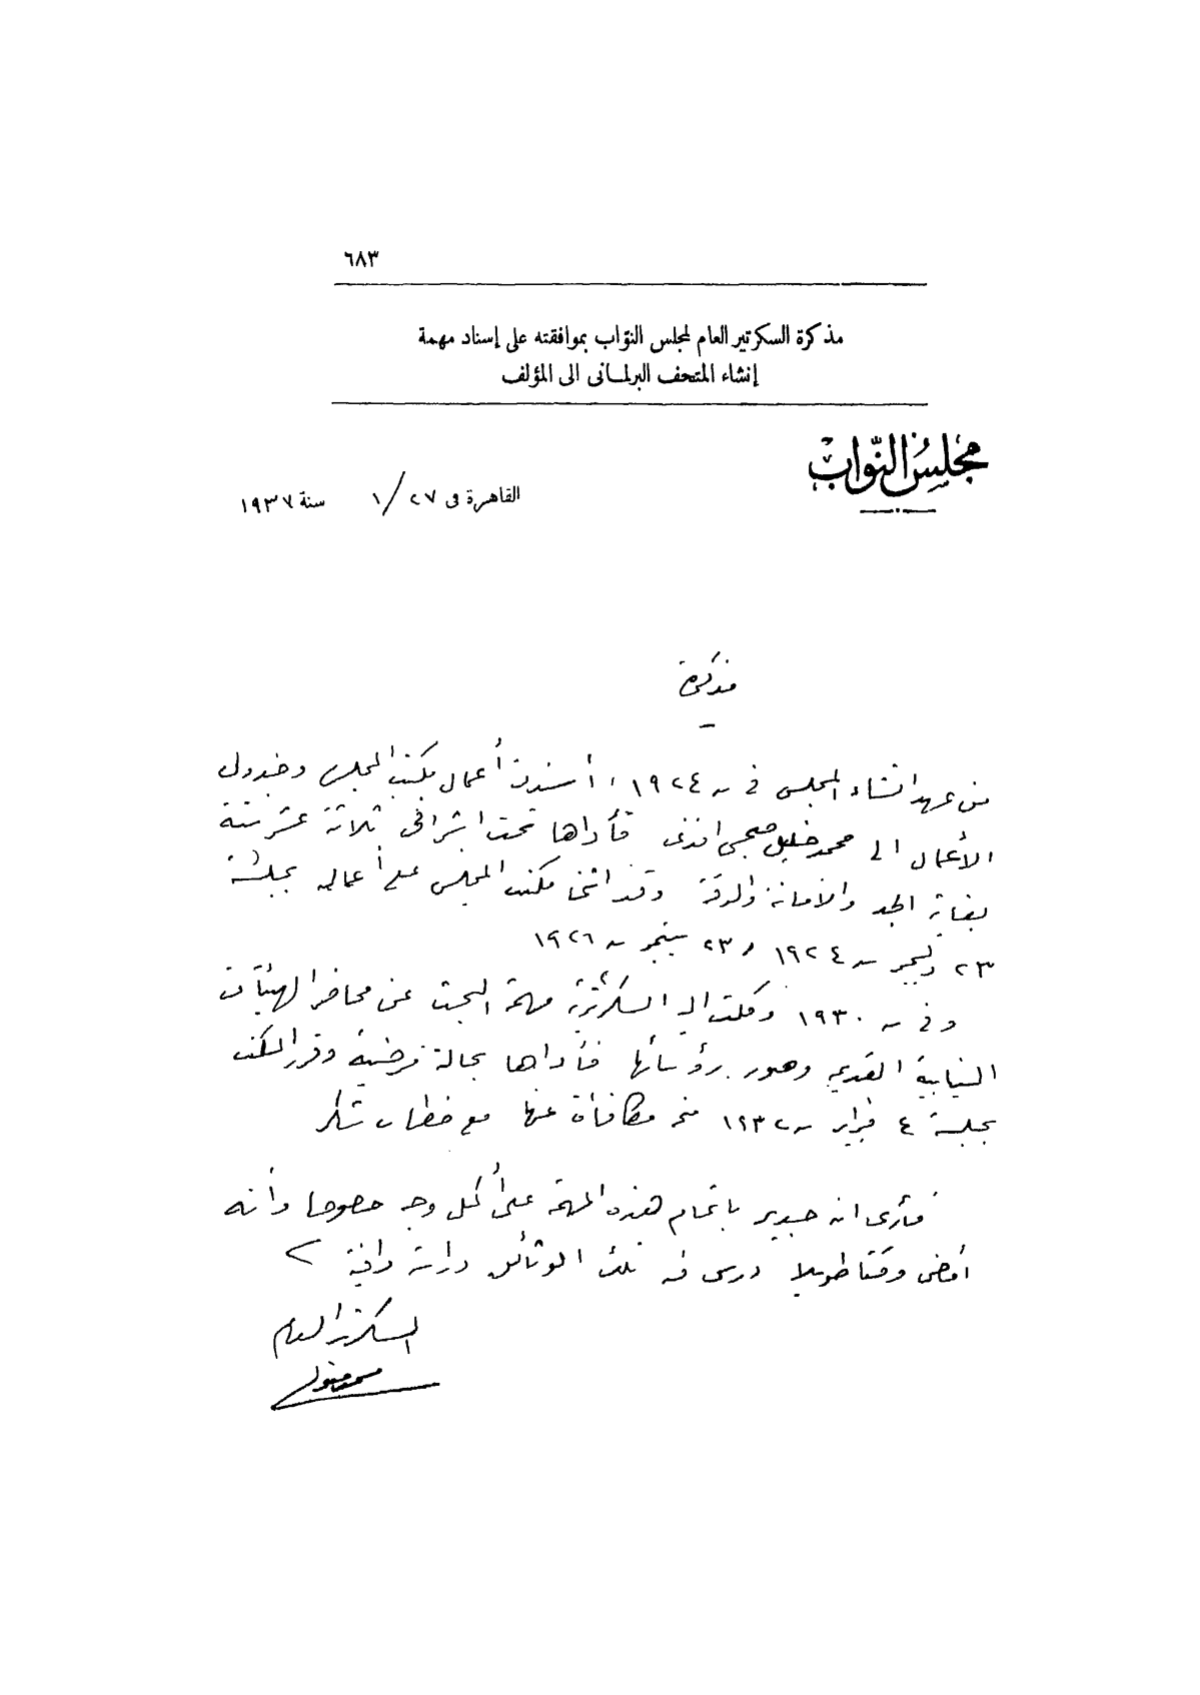 ٦٨٣
مذكرة السكرتير العام لمجلس النوّاب بموافقته على إسناد مهمة
إنشاء المتحف البرلمانى الى المؤلف
مجلس النوّاب
القاهرة فى ٢٧/١ سنة ١٩٣٧
مذكرة
من عهد انشاء المجلس فى سنة ١٩٢٤ أسندت أعمال مكتب المجلس وجدول
الأعمال الى محمد خليل صبحى افندى فأداها تحت اشرافى ثلاثة عشر سنة
بغاية الجد والأمانة والدقة وقد اثنى مكتب المجلس على أعماله بجلسة
٢٣ ديسمبر سنة ١٩٢٤ و ٢٣ سبتمبر سنة ١٩٢٦
وفى سنة ١٩٣٠ وكلت اليه السكرتيرية مهمة البحث عن محاضر الهيئات
النيابية القديمة وصور رؤسائها فأداها بحالة مرضية وقرر المكتب
بجلسة ٤ فبراير سنة ١٩٣٢ منحه مكافأة عنها مع خطاب شكر
فأرى انه جدير باتمام هذه المهمة على أكمل وجه خصوصا وأنه
أمضى وقتا طويلا درس فيه تلك الوثائق دراسة وافية
السكرتير العام